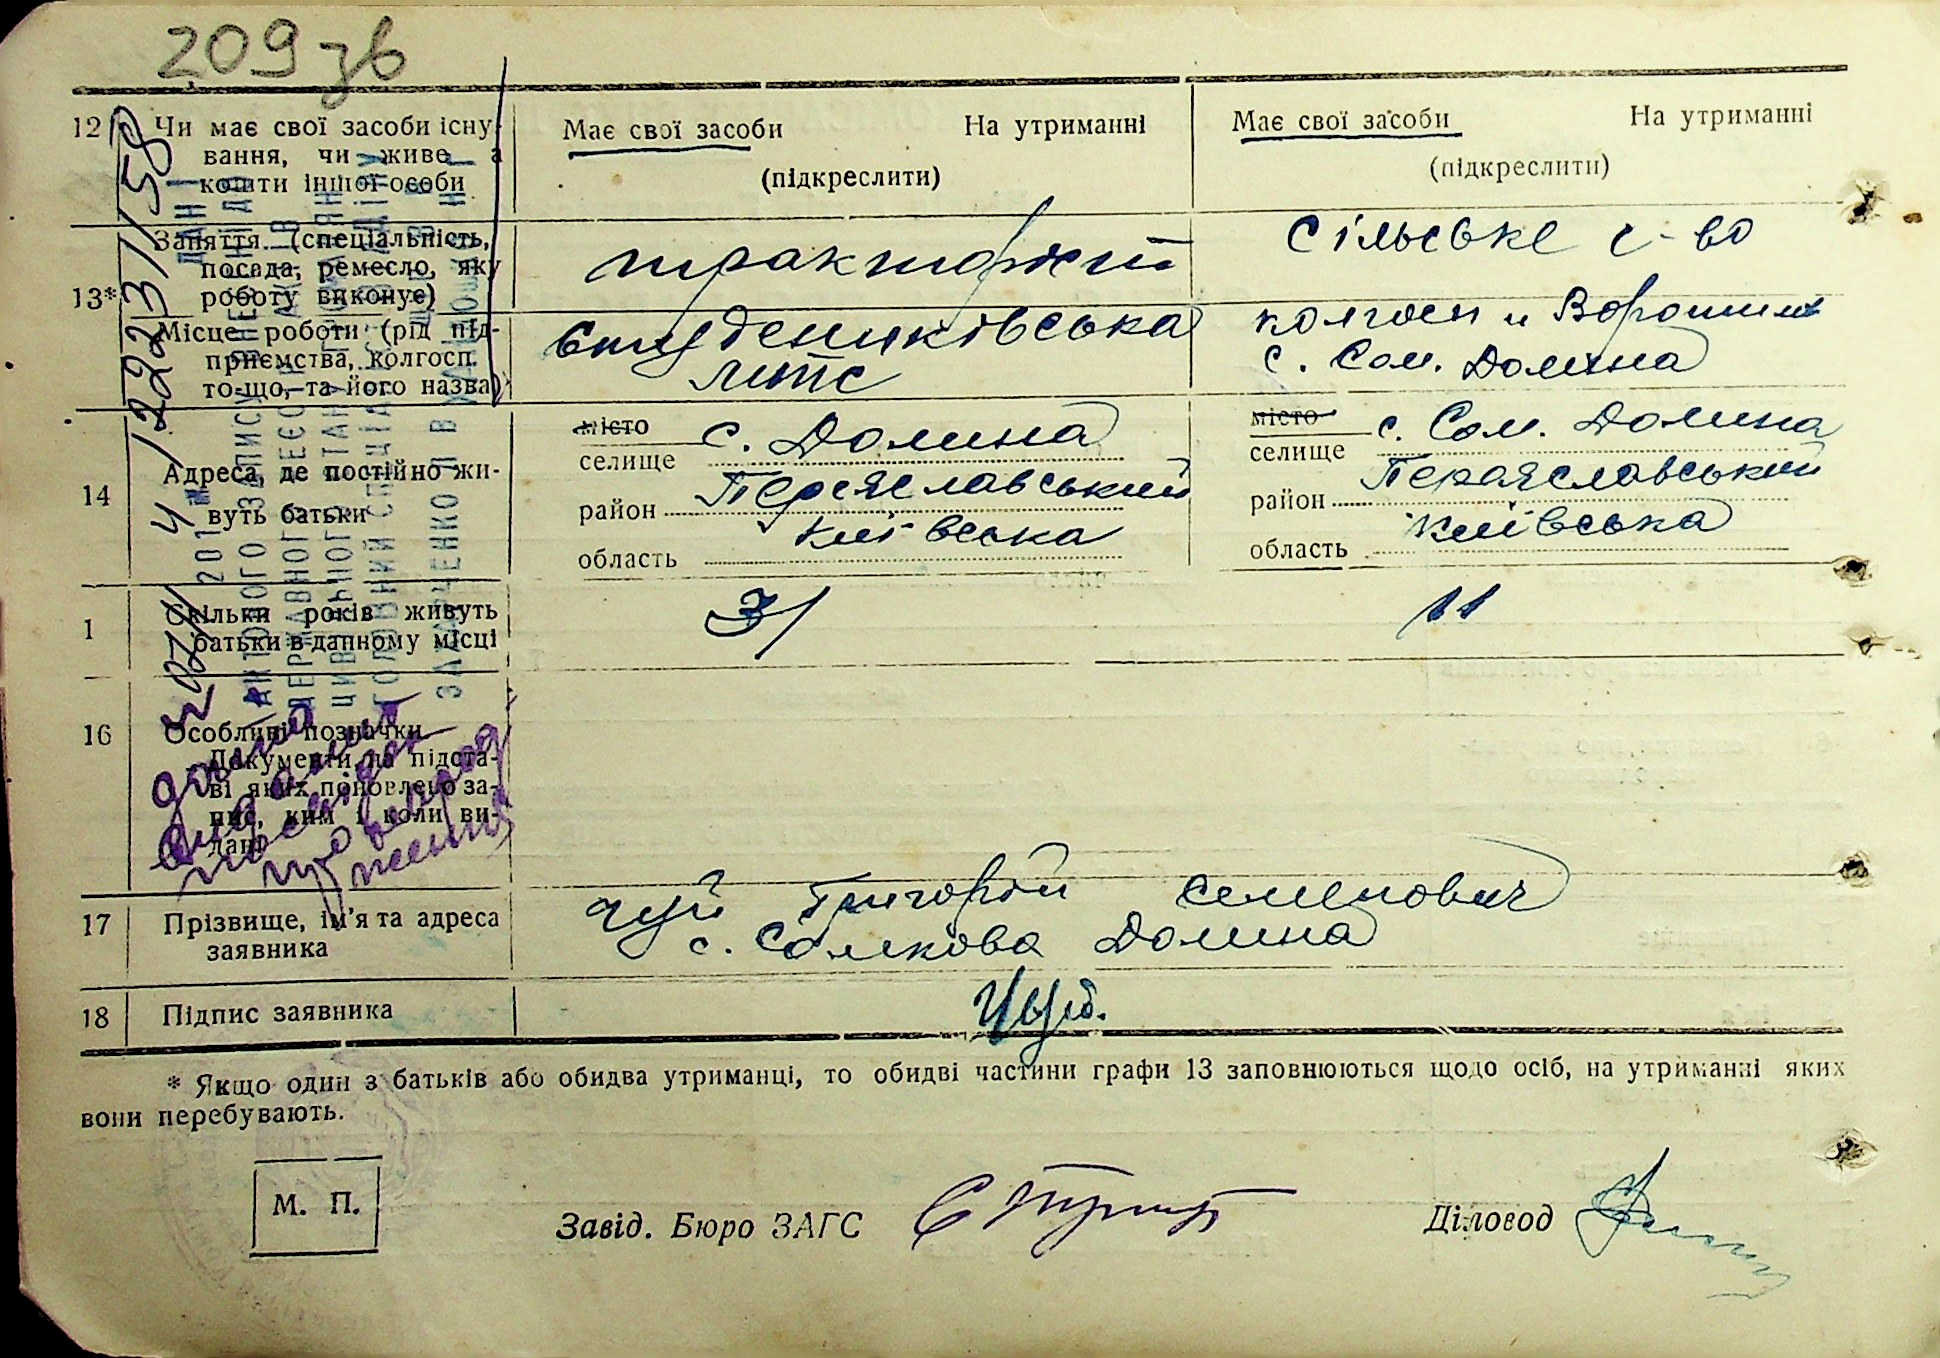 209 зв
12 Чи має свої засоби існу-
вання, чи живе а
кошти іншої особи
Має свої засоби На утриманні
(підкреслити)
Має свої засоби На утриманні
(підкреслити)
13* Заняття (спеціальність,
посада, ремесло, яку
роботу виконує)
тракторист
Сільське г-во
Місце роботи (рід під-
приємства, колгосп
то-що, та його назва)
Студениківська
МТС
колгосп
с. Сом. Долина
14 Адреса, де постійно жи-
вуть батьки
місто
селище с. Долина
район Переяславський
область Київська
місто
селище с. Сом. Долина
район Переяславський
область Київська
1 Скільки років живуть
батьки в данному місці
31
11
16 Особливі позначки
Документи, на підста-
ві яких поновлено за-
пис, ким і коли ви-
дані
17 Прізвище, ім'я та адреса
заявника
Чуй Григорій Семенович
с. Сомкова Долина
18 Підпис заявника
* Якщо один з батьків або обидва утриманці, то обидві частини графи 13 заповнюються щодо осіб, на утриманні яких
вони перебувають.
М. П.
Завід. Бюро ЗАГС
Діловод